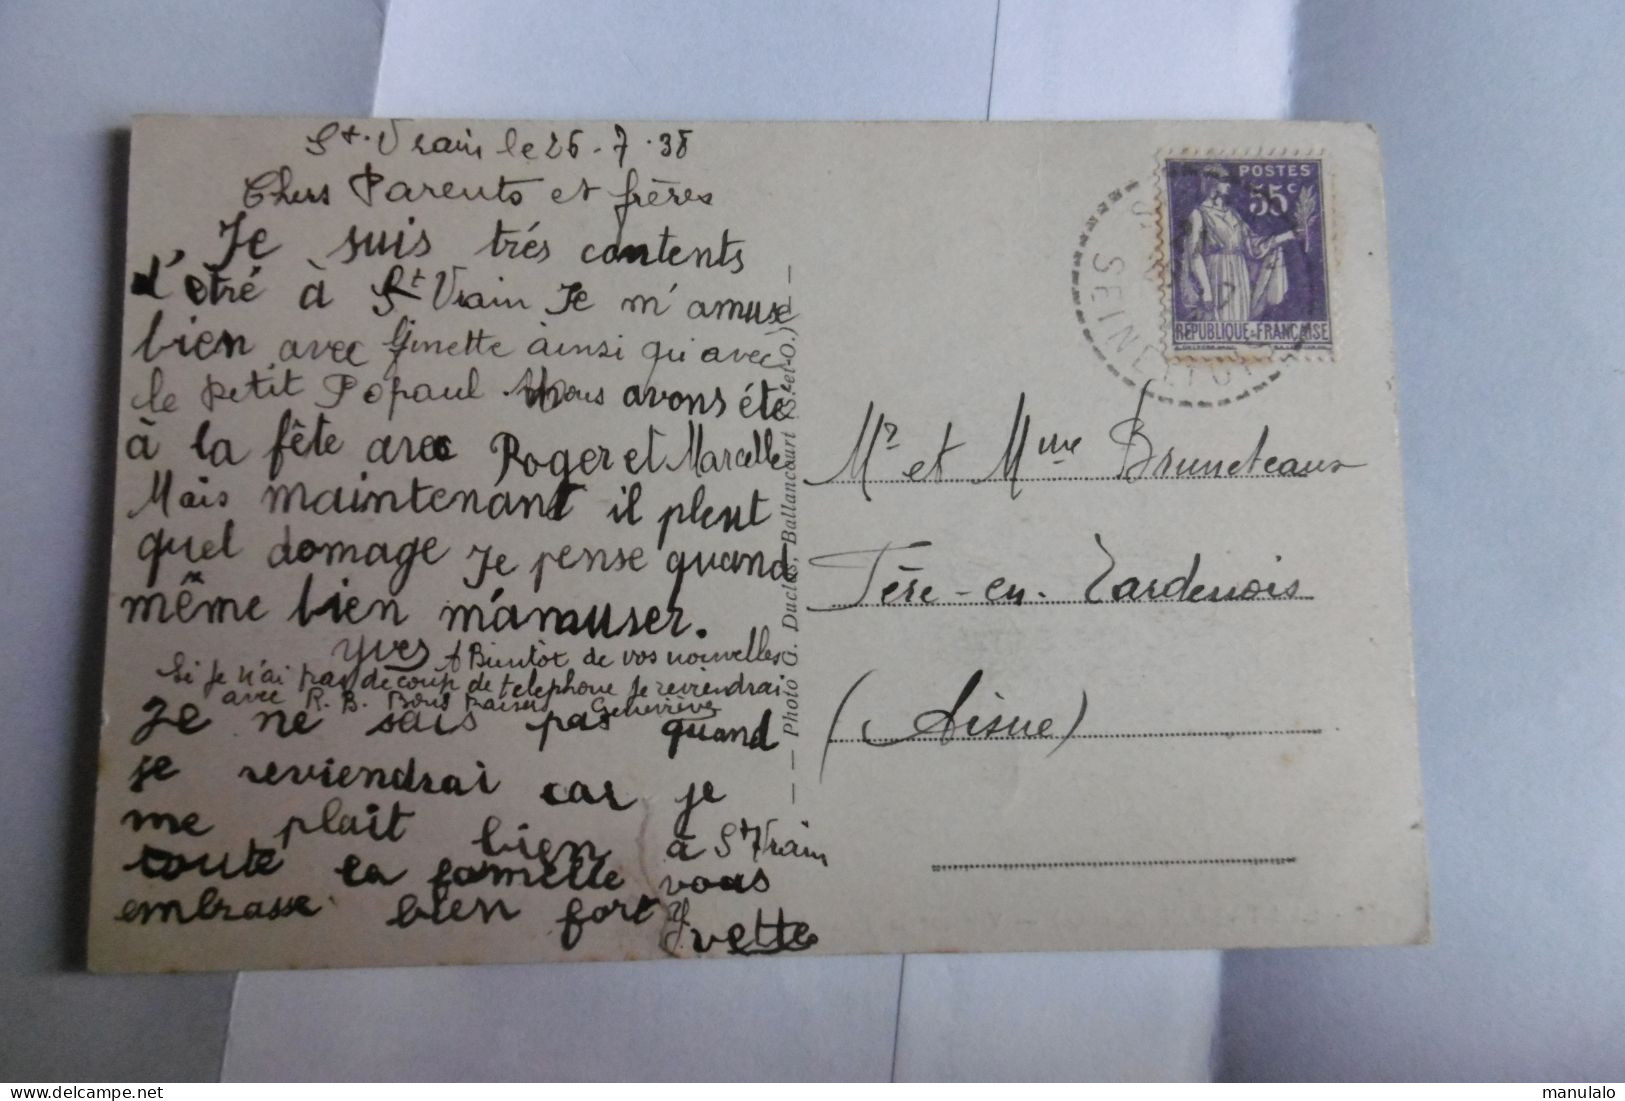 St. Vrain le 26-7.38
Chers Parents et frères
Je suis trés contents
d'etré à St Vrain Je m'amuse
bien avec Ginette ainsi qu'avec
le petit Popaul. Nous avons été
à la fête avec Roger et Marcelle
Mais maintenant il pleut
quel domage Je pense quand
même bien m'amuser.
Yves A Bientôt de vos nouvelles
Si je n'ai pas de coup de telephone je reviendrai
avec R. B. Bons Baisers Geneviève
Je ne sais pas quand
je reviendrai car je
me plait bien à St Vrain
toute la famille vous
embrasse bien fort
Yvette
Photo G. Duclos, Ballancourt (S.-et-O.)
POSTES
55c
REPUBLIQUE FRANÇAISE
SEINE ET OISE
Mr et Mme Bruneteaux
Fère-en-Tardenois
(Aisne)
manulalo